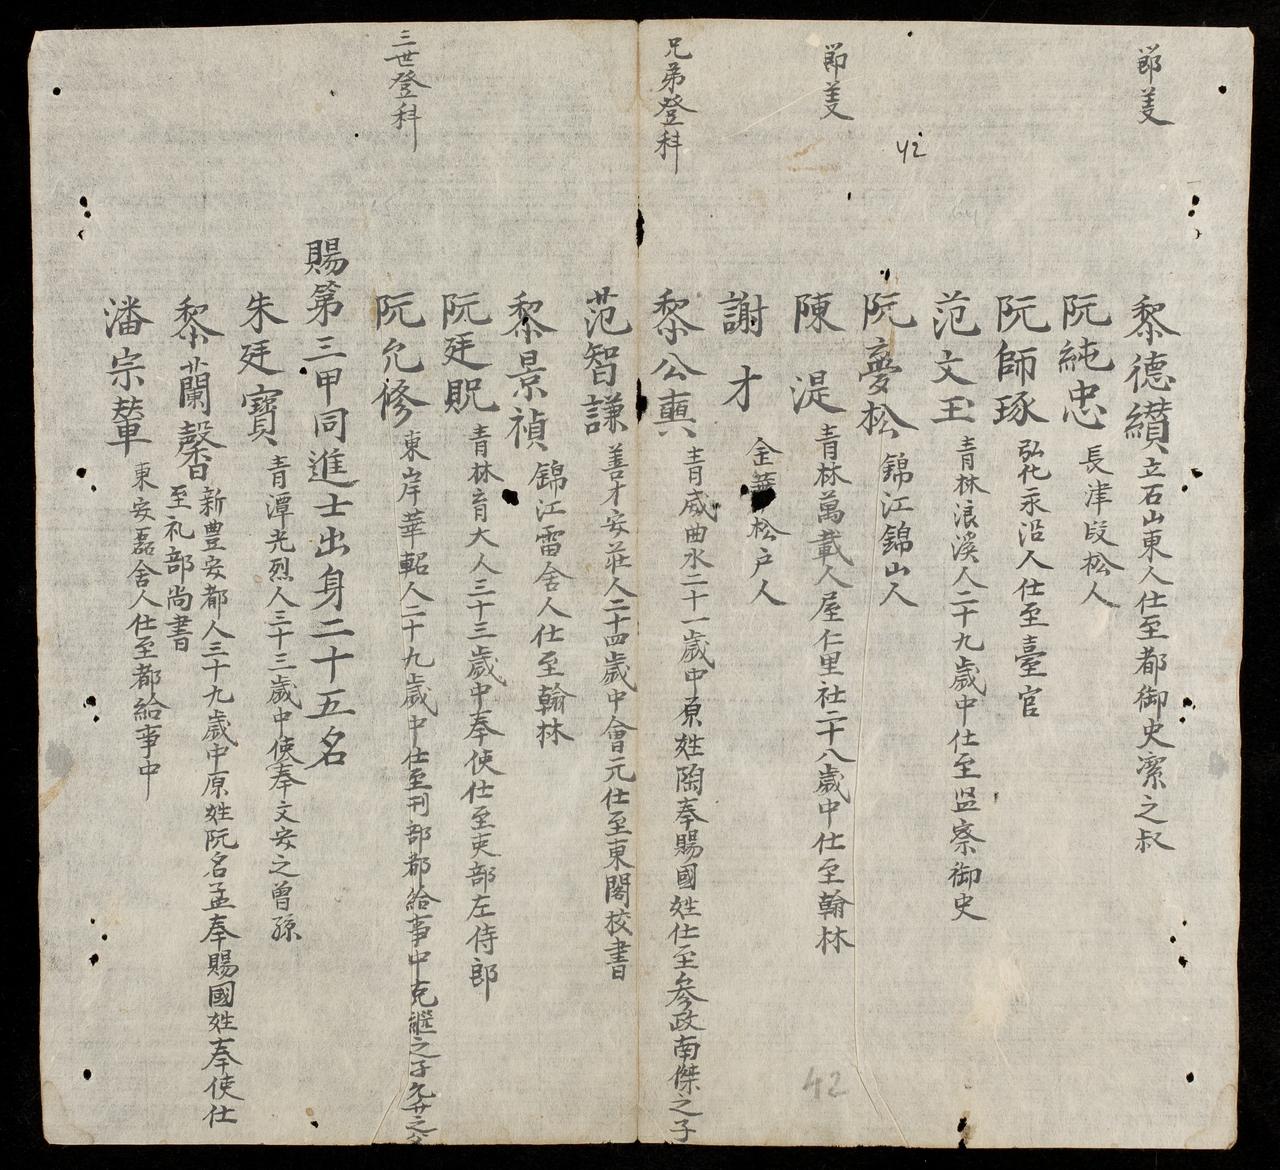 節義
黎德纘立石山東人仕至都御史潔之叔
阮純忠長津段松人
阮師琢弘化永沿人仕至臺官
范文玉青林浪溪人二十九歲中仕至监察御史
42
阮憂松錦江錦山人
節義
陳湜青林萬載人屋仁里社二十八歲中仕至翰林
謝才金華松户人
兄弟登科
黎公輿青威曲水二十一歲中原姓陶奉賜國姓仕至参政南傑之子
范智謙善才安莊人二十四歲中會元仕至東閣校書
黎景禎錦江雷舍人仕至翰林
阮廷貺青林育大人三十三歲中奉使仕至吏部左侍郎
三世登科
阮允修東岸華軺人二十九歲中仕至刊部都給事中克之子允之
賜第三甲同進士出身二十五名
朱廷寶青潭光烈人三十三歲中使奉文安之曾孫
黎蘭馨新豊安都人三十九歲中原姓阮名孟奉賜國姓奉使仕
至礼部尚書
潘宗東安磊舍人仕至都給事中
42